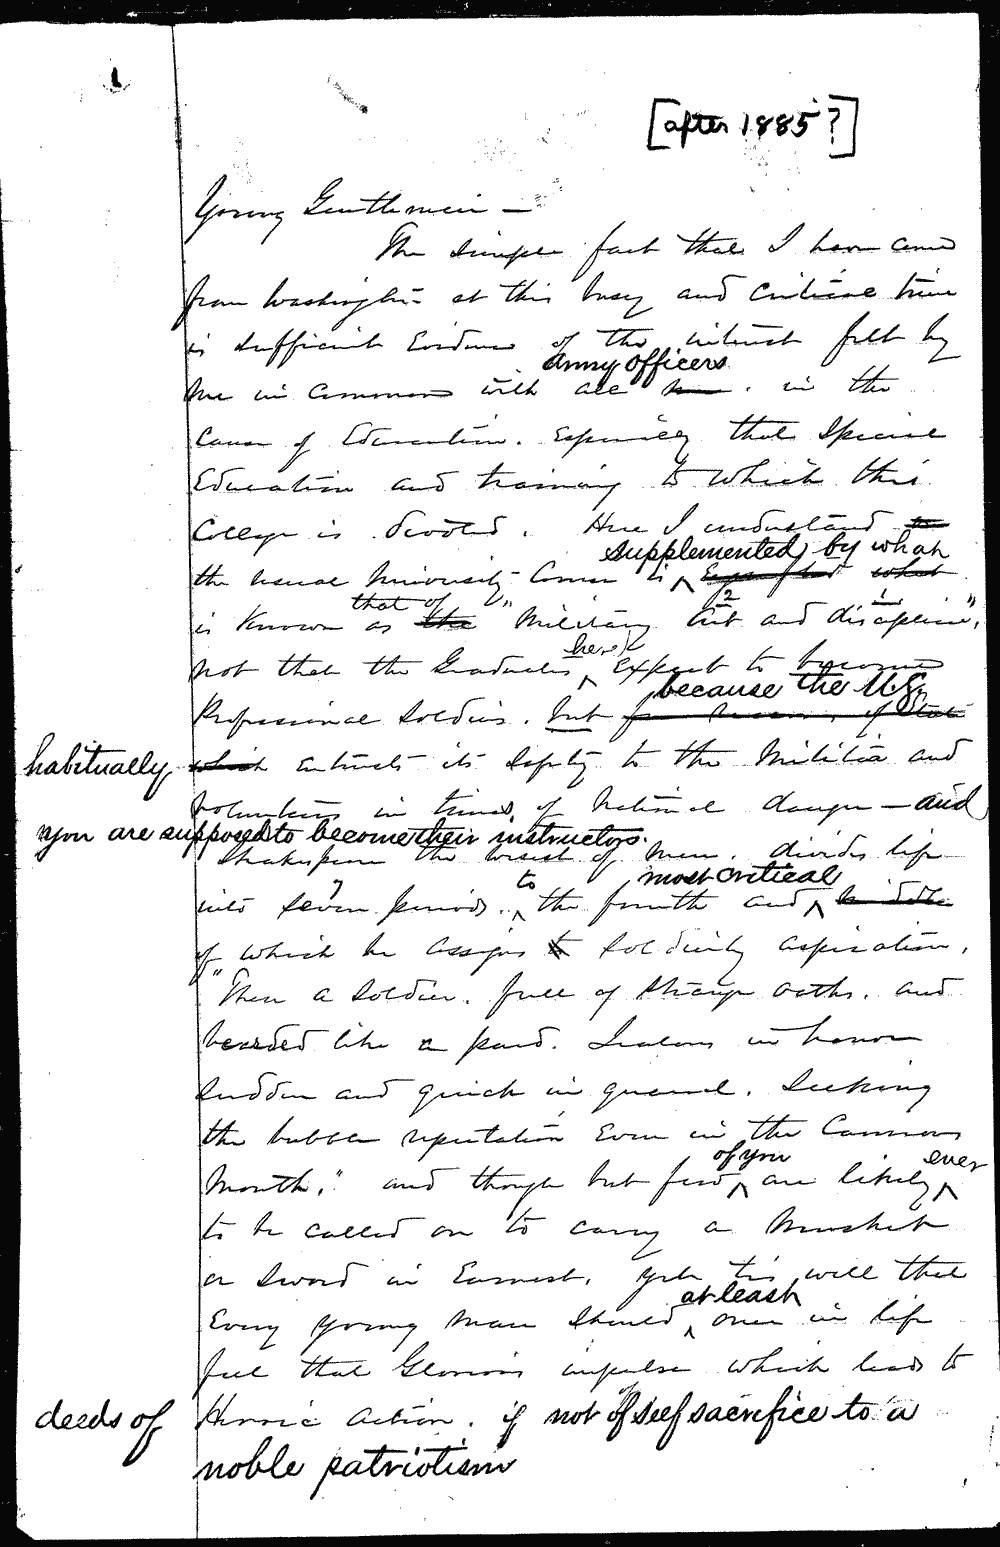 1
[after 1885?]
Young Gentlemen —
The simple fact that I have come
from Washington at this busy and critical time
is sufficient Evidence of the interest felt by
army officers
me in Common with all in the
Cause of Education. Especially that Special
Education and training to which this
College is devoted. Here I understand the
supplemented, by what
the usual University Course is what
that of
is Known as the "Military 2 Art and 1 discipline",
here
not that the Graduates Expect to become
because the U.S.
Professional Soldiers. but for reasons, of State
habitually which entrusts its Safety to the Militia and
volunteers in times, of National danger — and
you are supposed to become their instructors.
Shakespeare the wisest of men. divides life
to most critical
into seven periods. the fourth and middle
of which he assigns to Soldierly aspiration.
"Then a Soldier. full of strange oaths. and
bearded like a pard. Jealous in honor
Sudden and quick in quarrel. Seeking
the bubble reputation Even in the Cannons
of you ever
Mouth." and though but few are likely
to be called on to carry a Musket
or Sword in Earnest, yet tis well that
at least
Every young man should once in life
feel that Glorious impulse which leads to
deeds of Heroic Action. if not of self sacrifice to a
noble patriotism